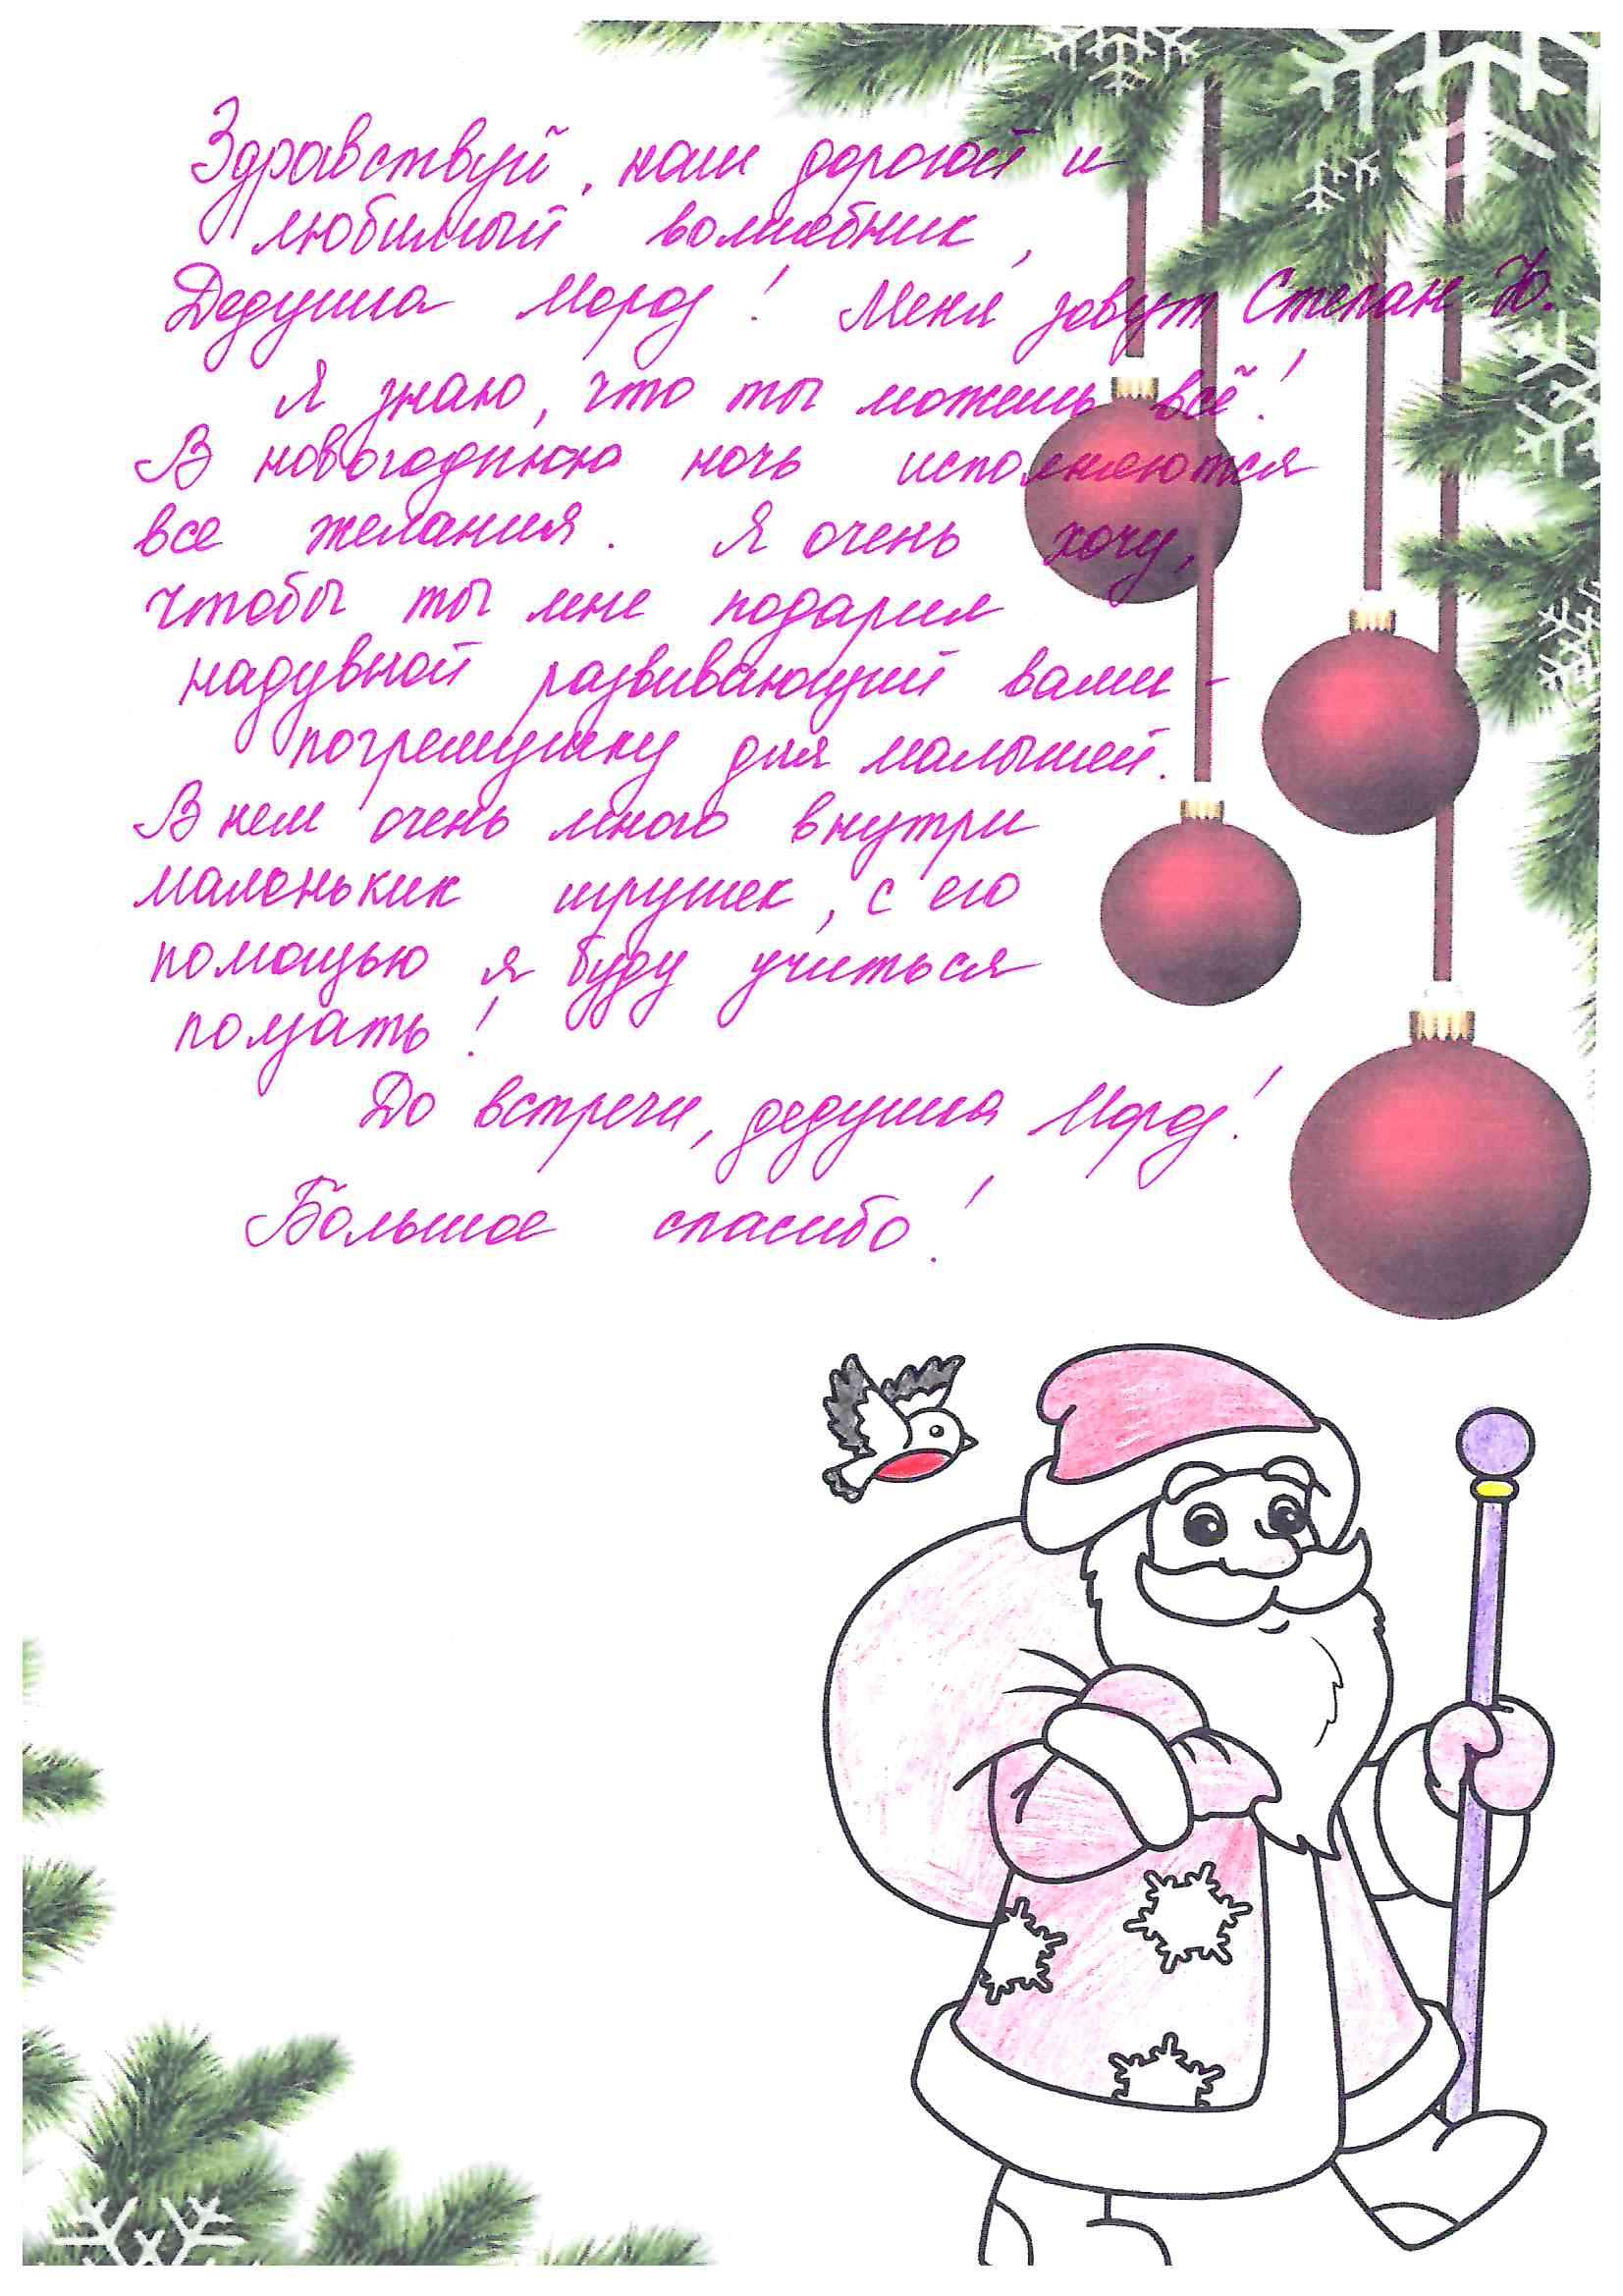 Здравствуй, наш дорогой и
любимый волшебник,
Дедушка Мороз! Меня зовут Степан Ю.
Я знаю, что ты можешь всё!
В новогоднюю ночь исполняются
все желания. Я очень хочу,
чтобы ты мне подарил
надувной развивающий валик-
погремушку для малышей.
В нем очень много внутри
маленьких игрушек, с его
помощью я буду учиться
ползать!
До встречи, дедушка Мороз!
Большое спасибо!